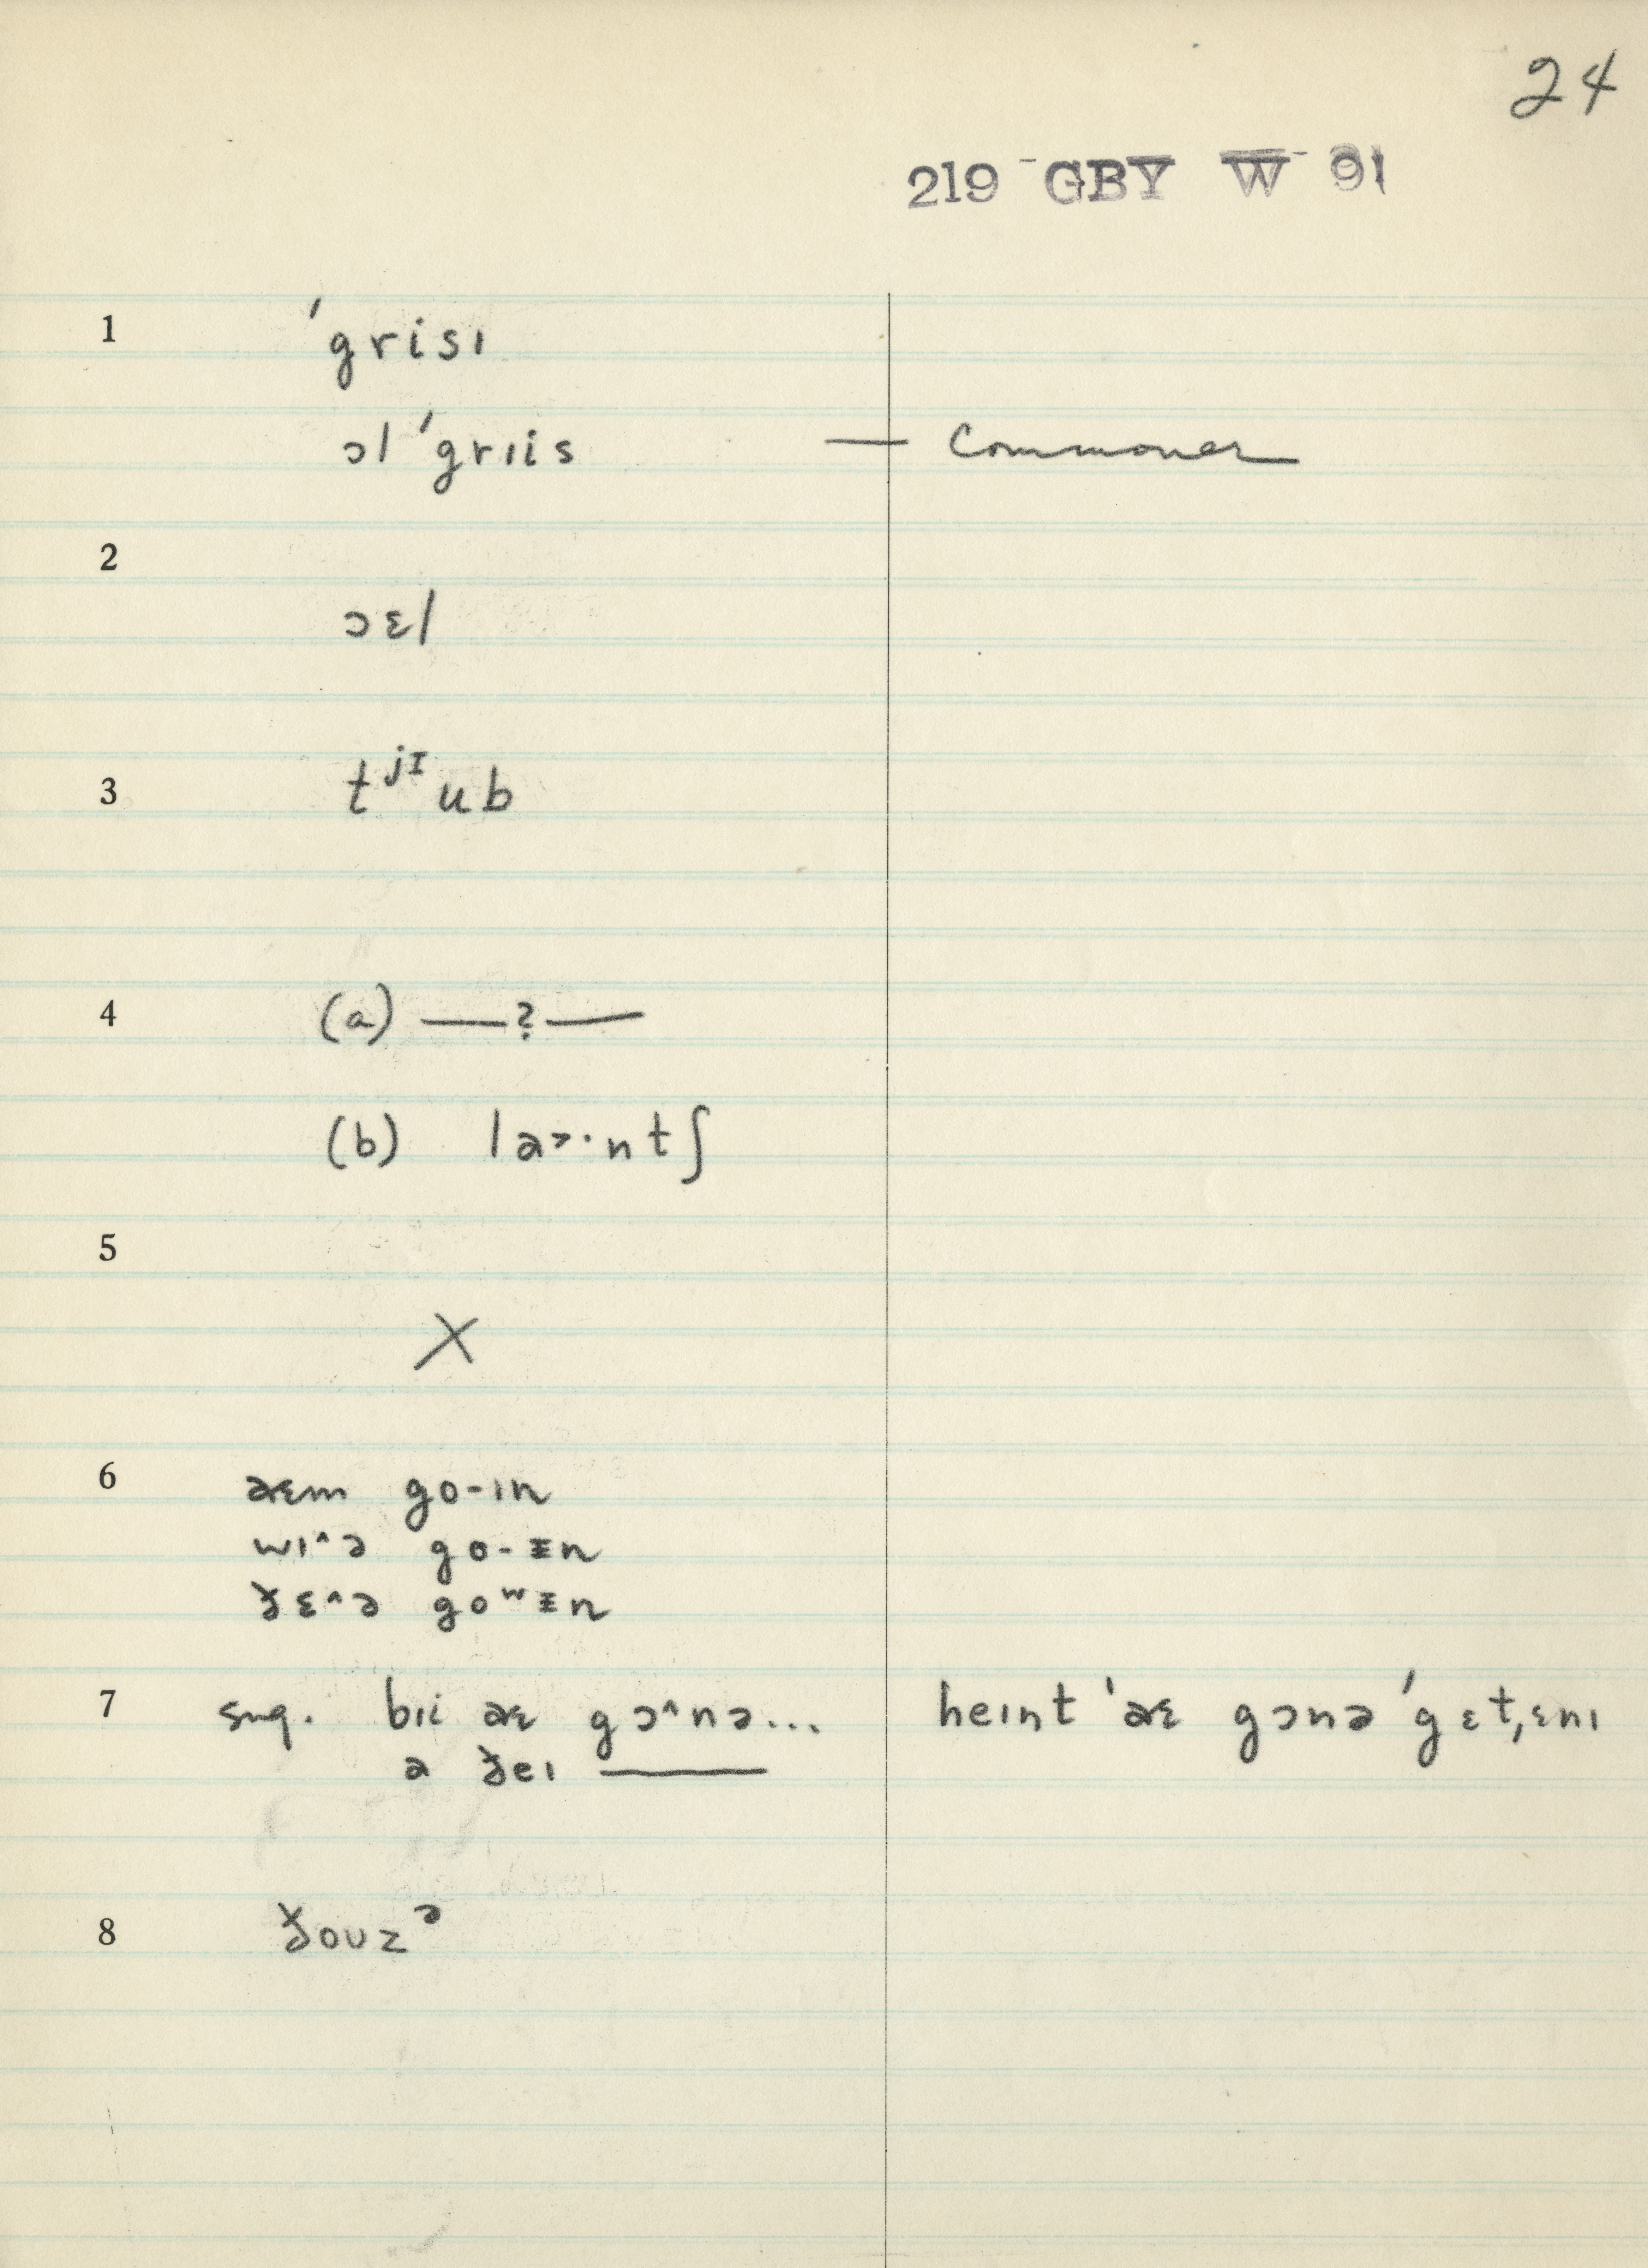 24
219 GBY W 91
1 ˈgrisɪ
ɔl ˈgrɪis — Commoner
2
ɔɛl
3 tʲᴵub
4 (a) —?—
(b) la˃·ntʃ
5
X
6 aɛm go-ɪn
wɪ^ə go-ᵻn
ðɛ^ə goʷᵻn
7 sng. bɪi aɛ gɔ^nə... heɪnt ˈaɛ gɔnə ˈgɛt,ɛnɪ
a ðeɪ ———
8 ðoʊzᵊ